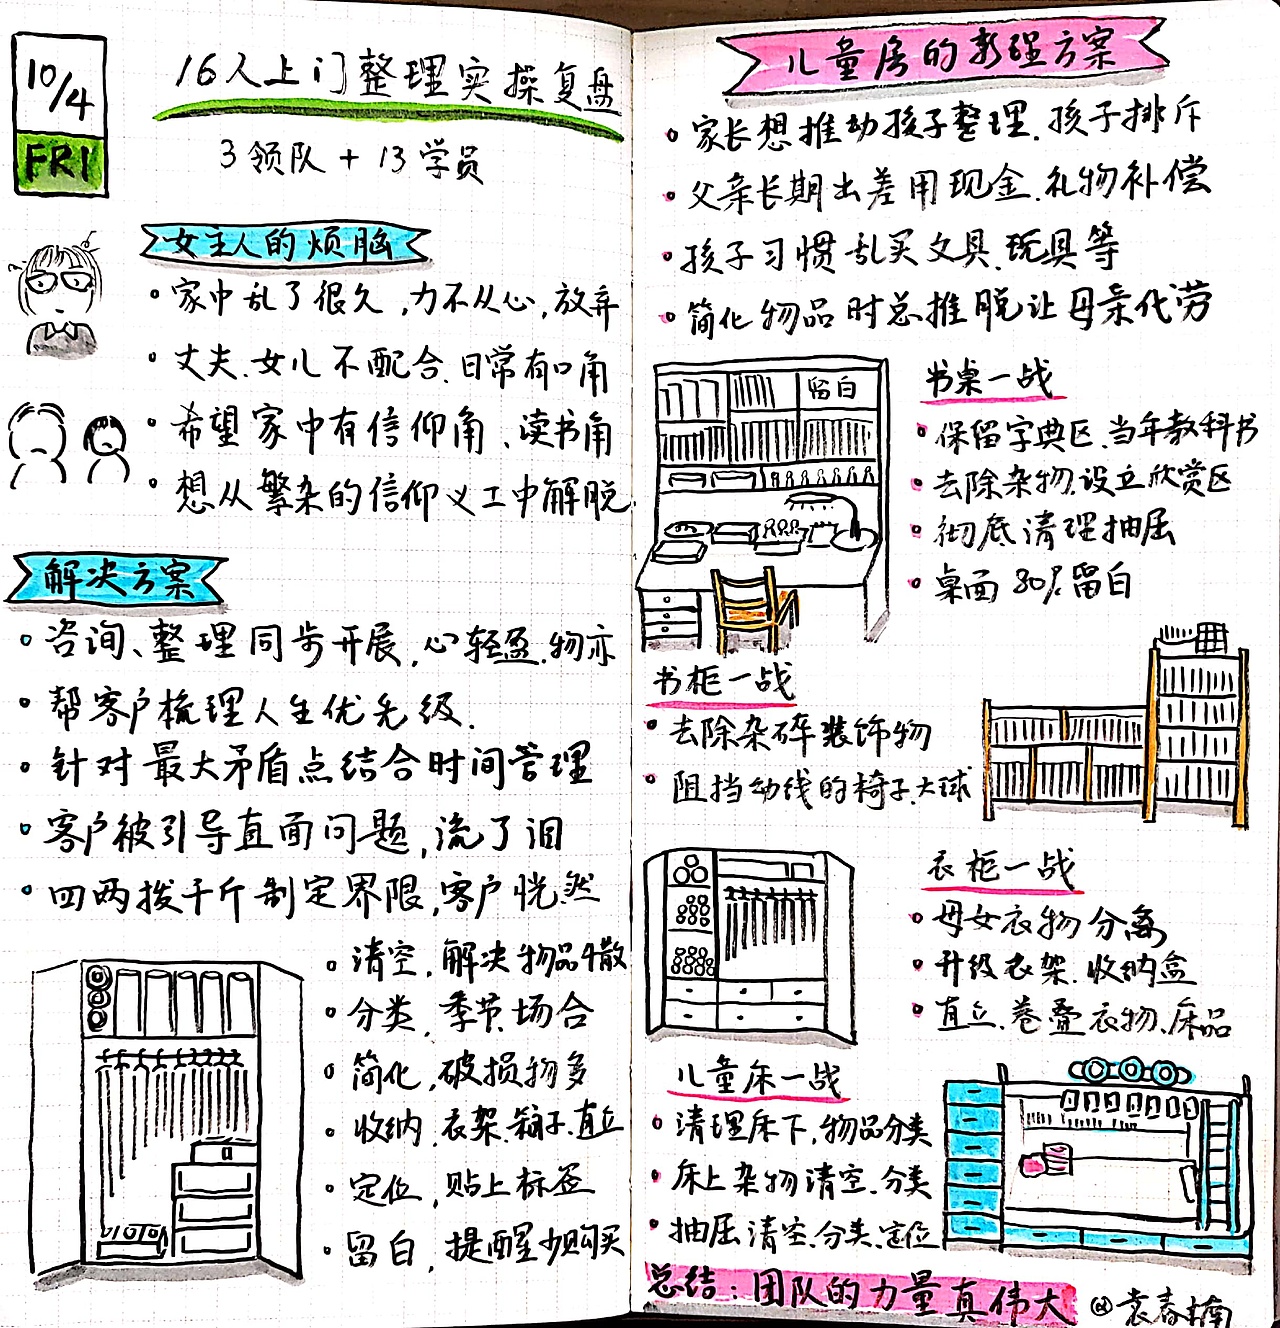 10/4
FRI
16人上门整理实操复盘
3领队+13学员
女主人的烦脑
家中乱了很久,力不从心,放弃
丈夫.女儿不配合.日常有口角
希望家中有信仰角、读书角
想从繁杂的信仰义工中解脱.
解决方案
咨询、整理同步开展,心轻盈.物亦
帮客户梳理人生优先级.
针对最大矛盾点结合时间管理
客户被引导直面问题,流了泪
四两拨千斤制定界限,客户恍然
清空,解决物品分散
分类,季节.场合
简化,破损物多
收纳,衣架.箱子.直立
定位,贴上标签
留白,提醒少购买
儿童房的整理方案
家长想推动孩子整理.孩子排斥
父亲长期出差用现金.礼物补偿
孩子习惯乱买文具.玩具等
简化物品时总推脱让母亲代劳
留白
书桌一战
保留字典区.当年教科书
去除杂物.设立欣赏区
彻底清理抽屉
桌面80%留白
书柜一战
去除杂碎装饰物
阻挡动线的椅子.大球
衣柜一战
母女衣物分离
升级衣架.收纳盒
直立.卷叠衣物、床品
儿童床一战
清理床下,物品分类
床上杂物清空.分类
抽屉清空.分类.定位
总结:团队的力量真伟大
@袁春楠